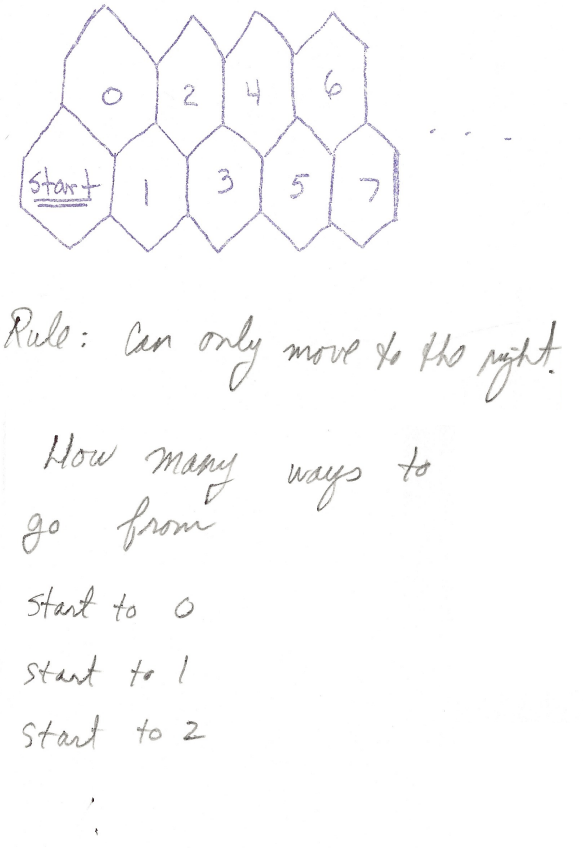 0 2 4 6
Start 1 3 5 7 . . . .
Rule: Can only move to the right.
How many ways to
go from
Start to 0
Start to 1
Start to 2
⋮